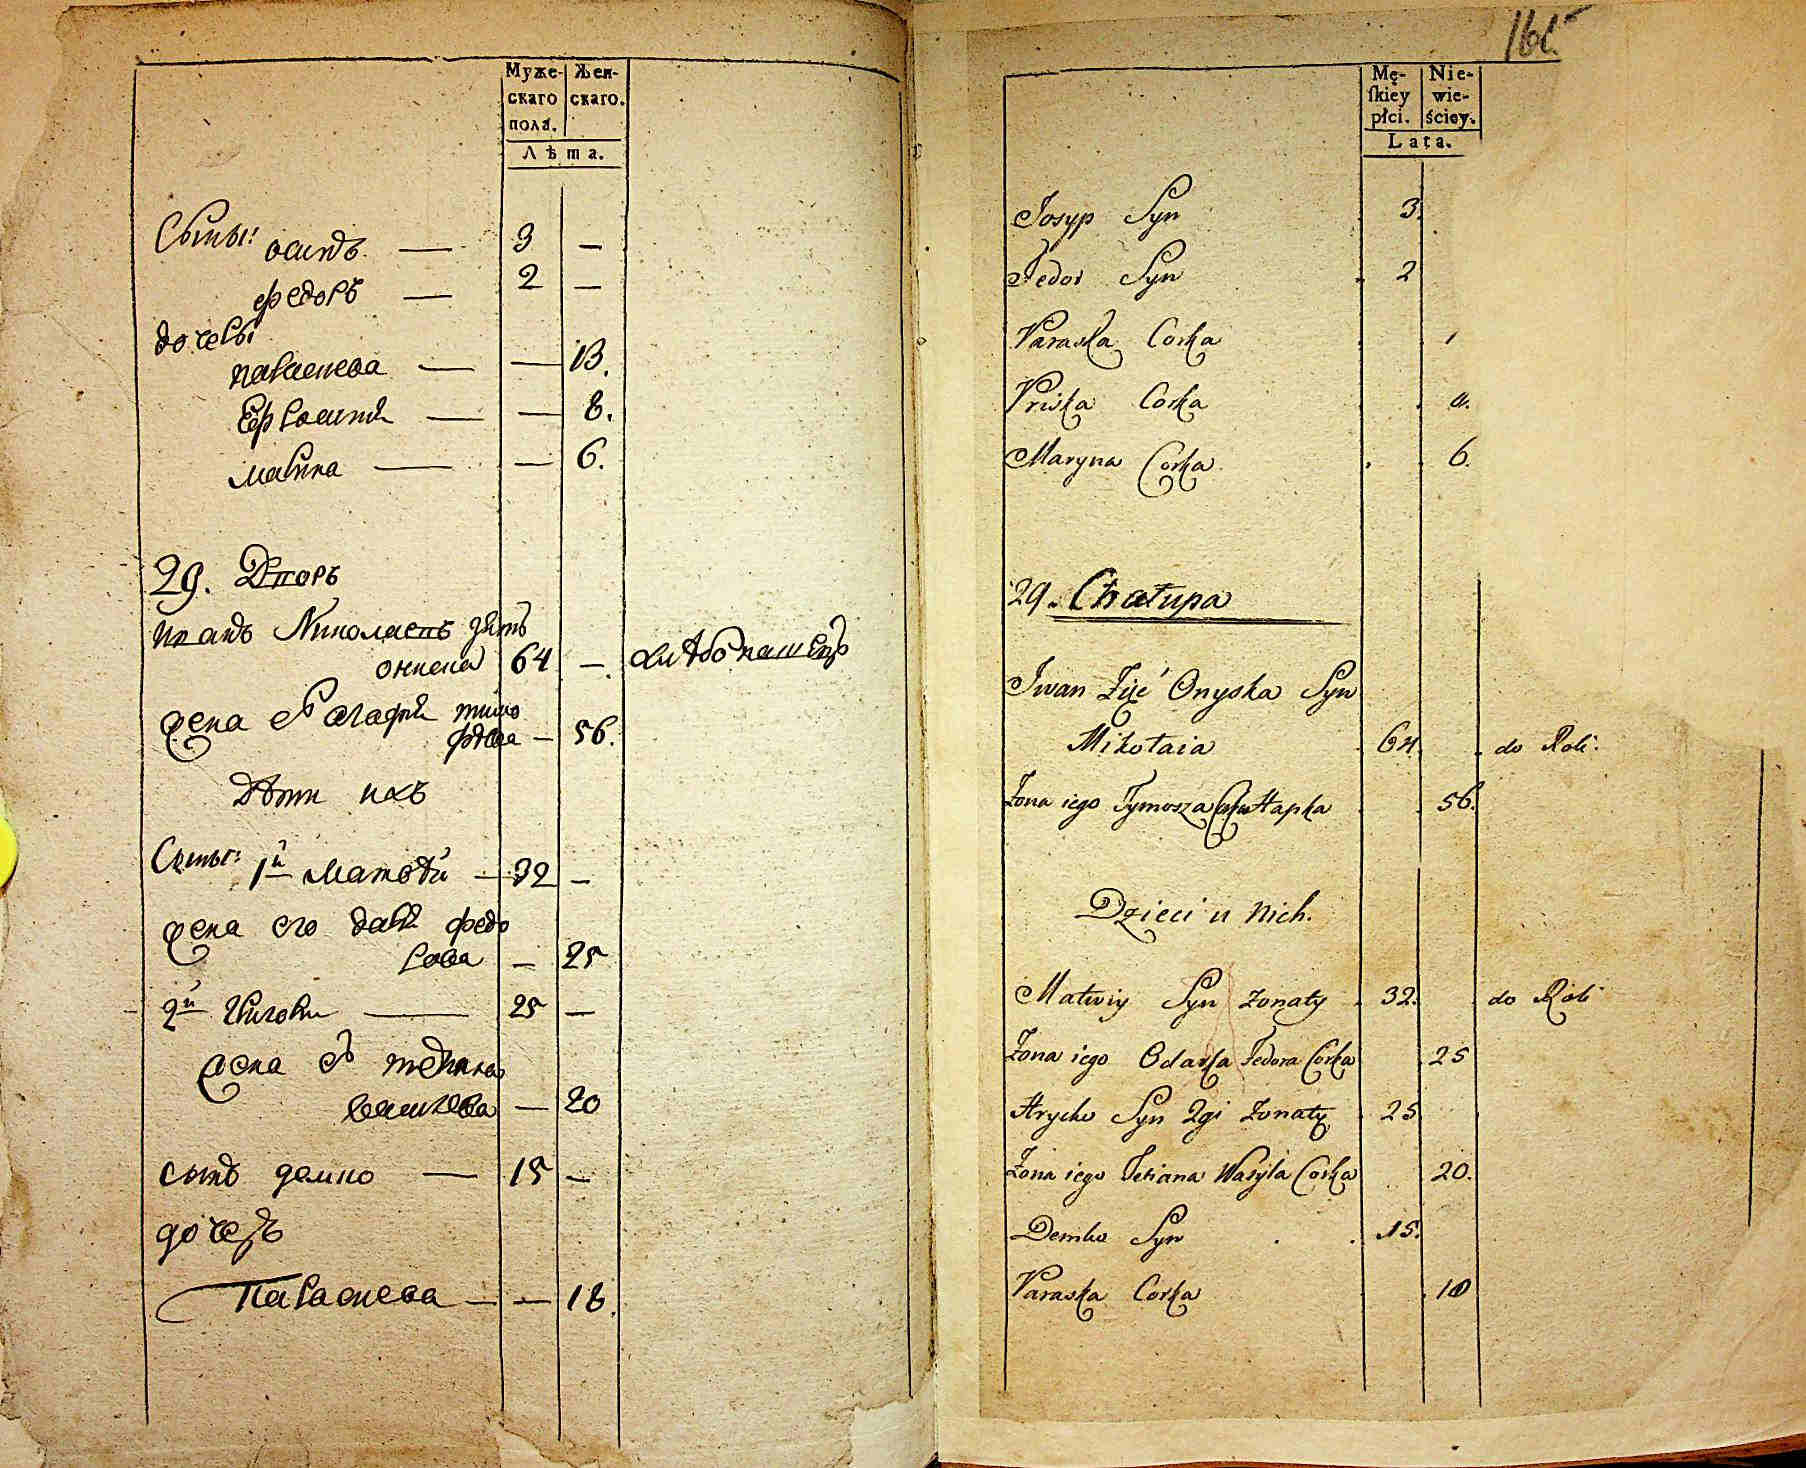 Муже- Жен-
скаго скаго.
пола.
Лѣта.
Сыны: осипъ — 3 —
федоръ — 2 —
дочеры
параскева — — 13.
Ефросиния — — 8.
марина — — 6.
29. Дворъ
иванъ Николаевъ зять
ониска 64 — хлѣбопашецъ
жена его агафия тимо
фѣева — 56.
Дѣти ихъ
Сыны: 1й матвѣй — 32 —
жена его дария федо
рова — 25
2й григори — 25 —
жена его тетiана
василева — 20
сынъ демко — 15 —
дочеръ
Параскева — — 18.
161
Mę- Nie-
skiey wie-
płci. ściey.
Lata.
Josyp Syn 3.
Fedor Syn 2
Paraska Corka
Priska Corka
Maryna Corka 6.
29. Chałupa
Iwan Zięć Onyska Syn
Mikołaia 64. do Roli.
Żona iego Tymosza Corka Hapka 56.
Dzieci u nich.
Matwiy Syn żonaty 32. do Roli
Żona iego Odarka Fedora Corka 25
Hryćko Syn 2gi żonaty 25
Żona iego Tetiana Wasyla Corka 20.
Demko Syn 15.
Paraska Corka 18